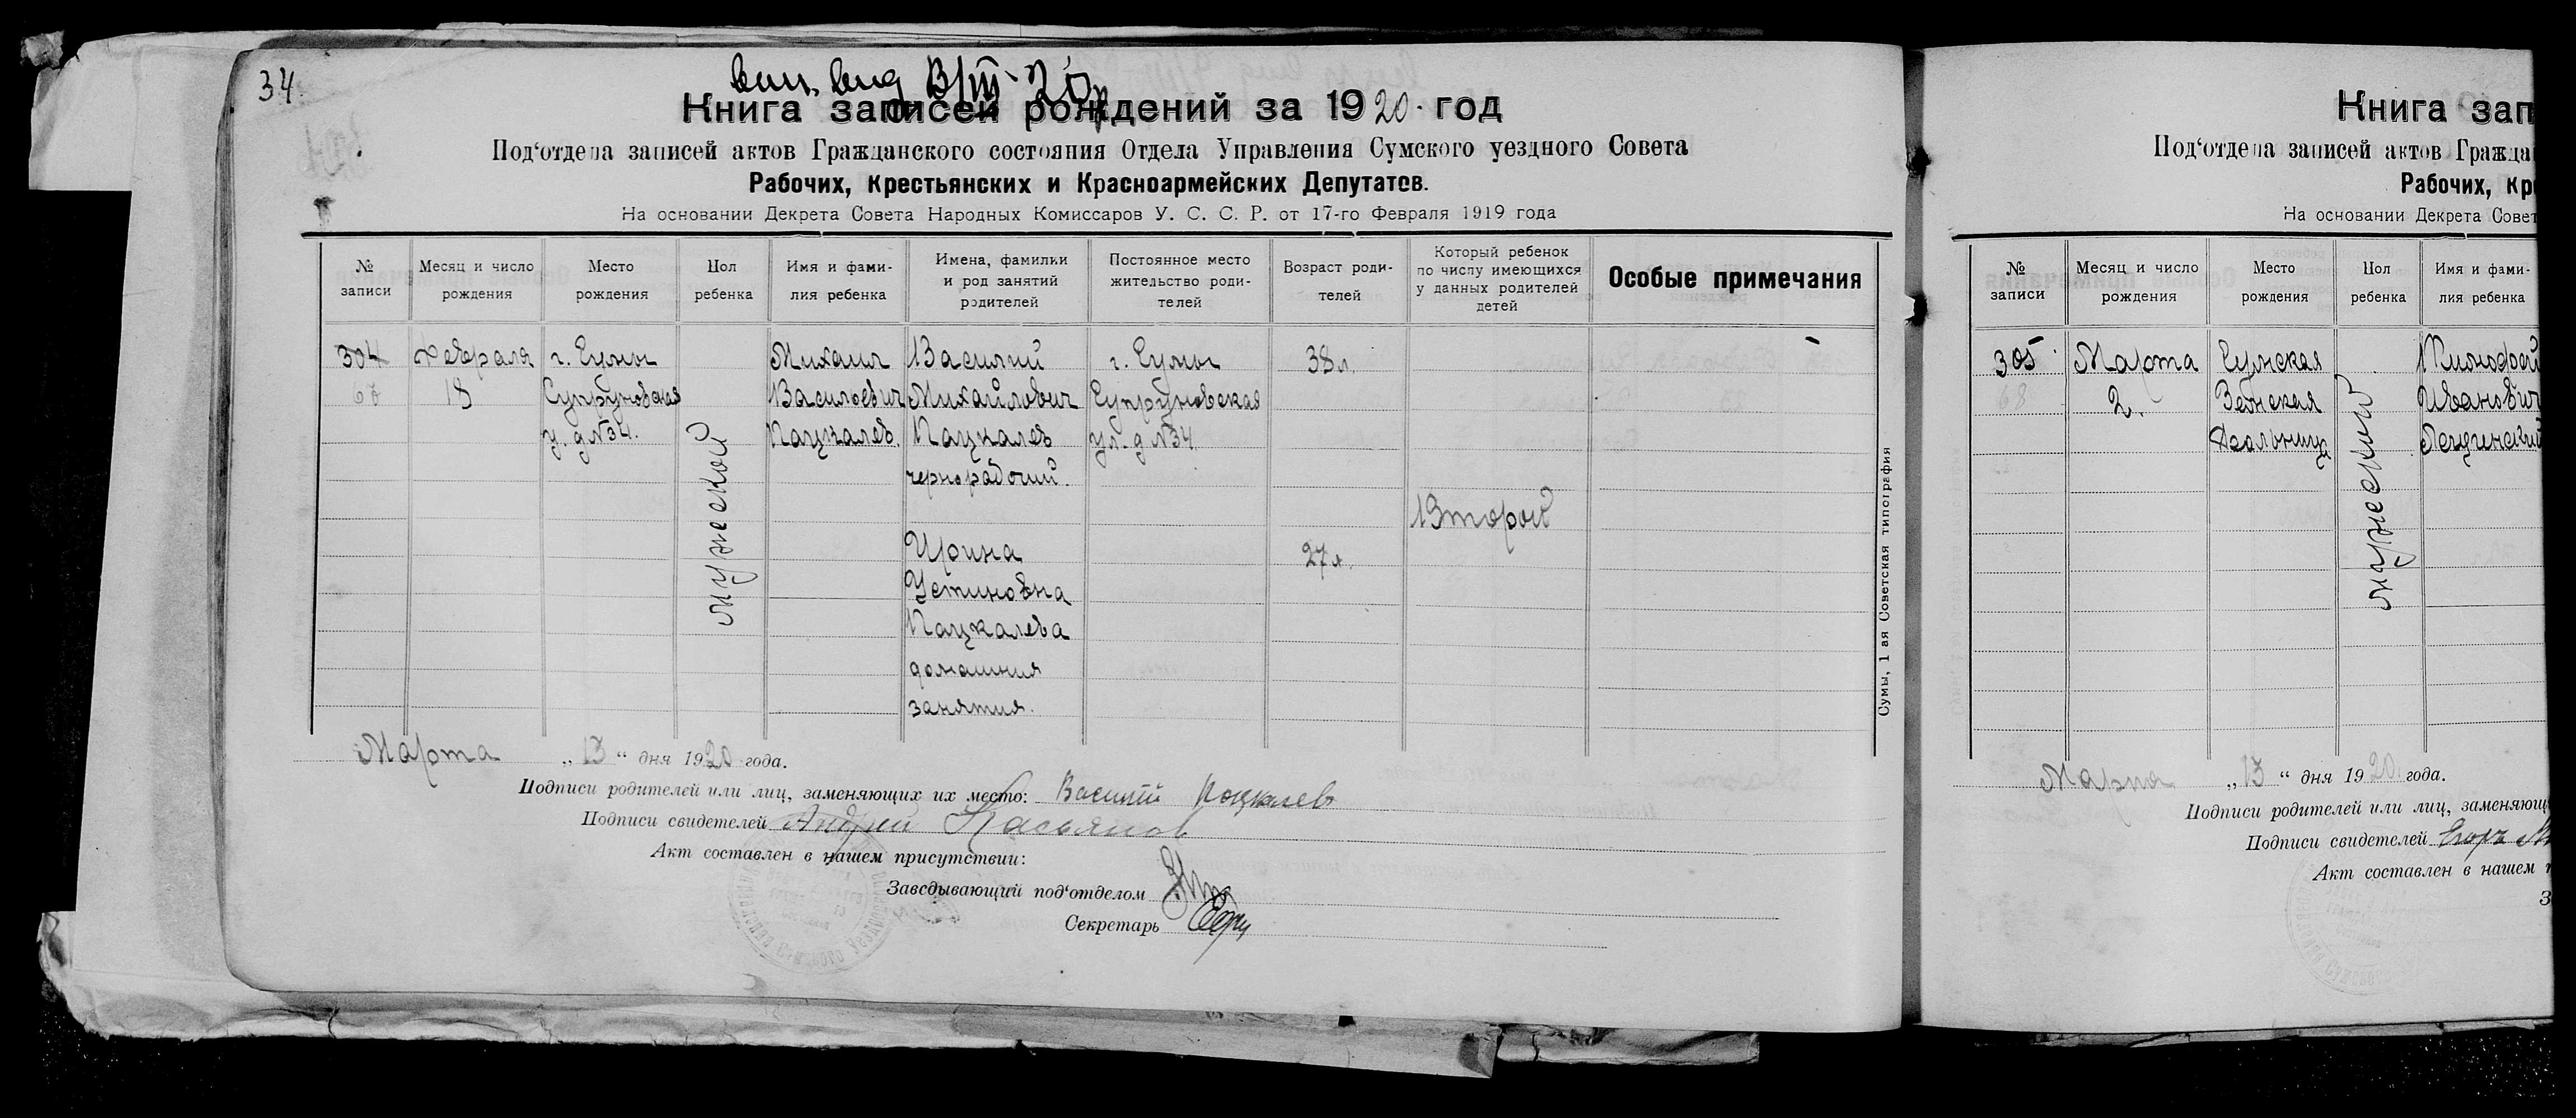 34.
вып. вид 13/III-20 г
Книга записей рождений за 1920. год
Под‘отдела записей актов Гражданского состояния Отдела Управления Сумского уездного Совета
Рабочих, Крестьянских и Красноармейских Депутатов.
На основании Декрета Совета Народных Комиссаров У. С. С. Р. от 17-го Февраля 1919 года
№ записи
Месяц и число рождения
Место рождения
Пол ребенка
Имя и фами-лия ребенка
Имена, фамилки и род занятий родителей
Постоянное место жительство роди-телей
Возраст роди-телей
Который ребенок по числу имеющихся у данных родителей детей
Особые примечания
304 Февраля г. Сумы Михаил Василий г. Сумы 38 л.
67 18 Супруновская Васильевич Михайлович Супруновская
у. д №34. Пацкалев. Пацкалев ул. д №34
чернорабочий.
мужеской
Второй
Ирина 27 л.
Устиновна
Пацкалева
домашния
занятия.
Сумы, 1 ая Советская типография
Марта „13“ дня 1920 года.
Подписи родителей или лиц, заменяющих их место: Василий Пацкалев
Подписи свидетелей Андрей Касьянов
Акт составлен в нашем присутствии:
Заведывающий под‘отделом
Секретарь
Книга зап
Под‘отдела записей актов Гражда
Рабочих, Кр
На основании Декрета Совет
№ записи
Месяц и число рождения
Место рождения
Пол ребенка
Имя и фами-лия ребенка
305 Марта Сумская
68 2. Земская Иванович
больница
мужеской
Марта „13“ дня 1920. года.
Подписи родителей или лиц, заменяющ
Подписи свидетелей Егоръ
Акт составлен в нашем п
З